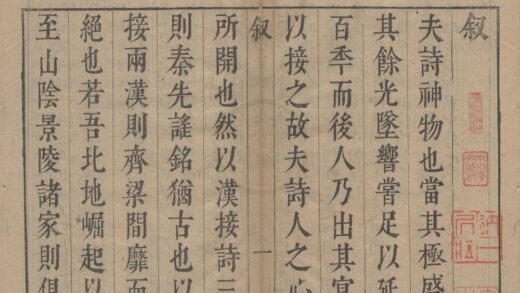 叙
夫詩神物也當其極盛
其餘光墜響嘗足以延
百秊而後人乃出其宜
以接之故夫詩人之心
叙
一
所開也然以漢接詩三
則秦先謠銘猶古也以
接兩漢則齊梁間靡而
絕也若吾北地崛起以
至山陰景陵諸家則俱